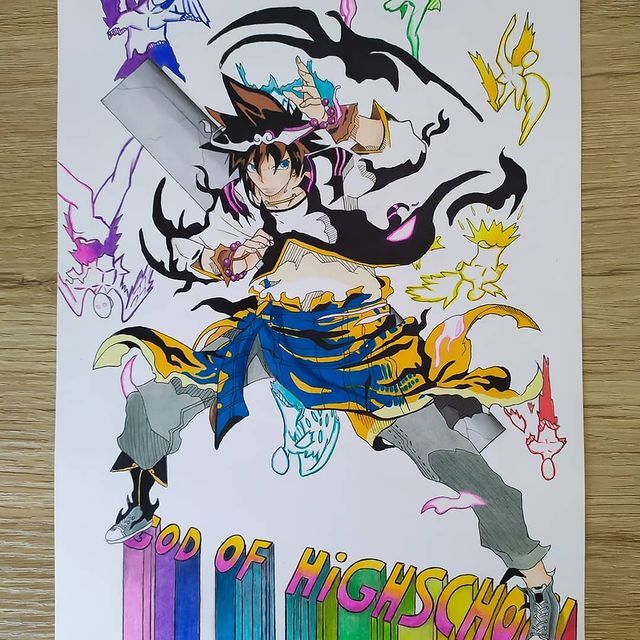 GOD OF HiGHSCHOOL